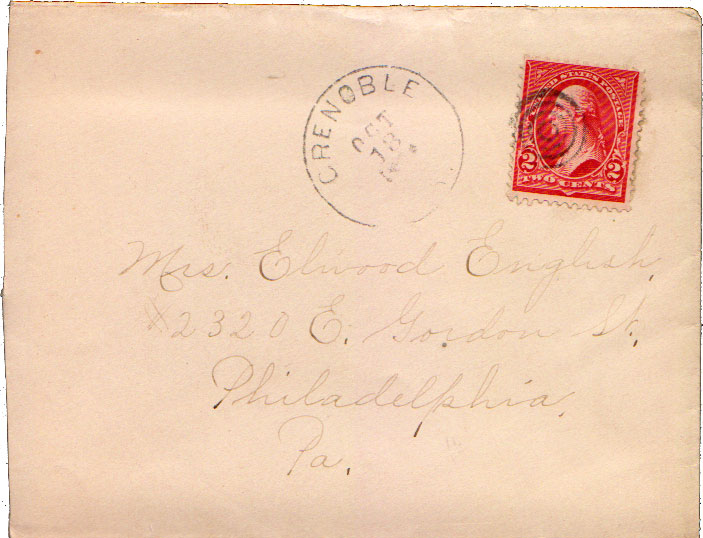 GRENOBLE
OCT
18
UNITED STATES POSTAGE
2 2
TWO CENTS
Mrs. Elwood English,
2320 E. Gordon St.
Philadelphia,
Pa.